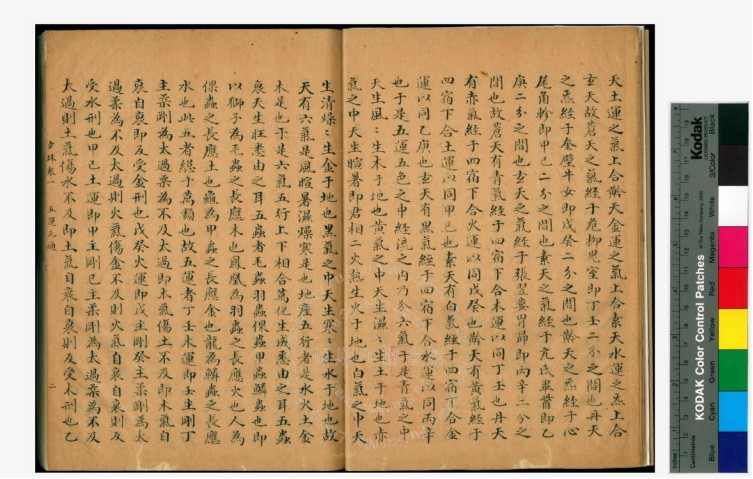 天土運之氣上合黅天金運之氣上合素天水運之炁上合
玄天故蒼天之氣經于危柳鬼室即丁壬二分之間也丹天
之炁經于奎壁牛女即戊癸二分之間也黅天之炁經于心
尾角軫即甲己二分之間也素天之氣經于亢氐畢昴即乙
庚二分之間也玄天之氣經于張翌婁胃即丙辛二分之
間也故蒼天有青氣經于四宿下合木運以同丁壬也丹天
有赤氣經于四宿下合火運以同戊癸也黅天有黃氣經于
四宿下合土運以同甲己也素天有白氣經于四宿下合金
運以同乙庚也玄天有黑氣經于四宿下合水運以同丙辛
也于是五運五色之中經流之內乃分六氣于是青氣之中
天生風：生木于地也黃氣之中天生濕：生土于地也赤
氣之中天生暄暑即君相二火熱生火于地也白氣之中天
生清燥：生金于地也黑氣之中天生寒：生水于地也故
天有六氣是風暄暑濕燥寒是也地產五行者是水火土金
木是也于是六氣五行上下相合萬化生成悉由之耳五蟲
衰天生旺悉由之耳五蟲者毛蟲羽蟲倮蟲甲蟲鱗蟲也即
以獅子為毛蟲之長應木也鳳凰為羽蟲之長應火也人為
倮蟲之長應土也龜為甲蟲之長應金也龍為鱗蟲之長應
水也此五者總于萬類也故五運者丁壬木運即壬主剛丁
主柔剛為太過柔為不及太過即木氣傷土不及即木氣自
衰自衰即反受金刑也戊癸火運即戊主剛癸主柔剛為太
過柔為不及太過則火氣傷金不及則火氣自衰自衰則反
受水刑也甲己土運即甲主剛己主柔剛為太過柔為不及
太過則土氣傷水不及即土氣自衰自衰則反受木刑也乙
卷一
五運
二
Kodak
KODAK Color Control Patches
Blue
Cyan
Green
Yellow
Red
Magenta
White
3/Color
Black